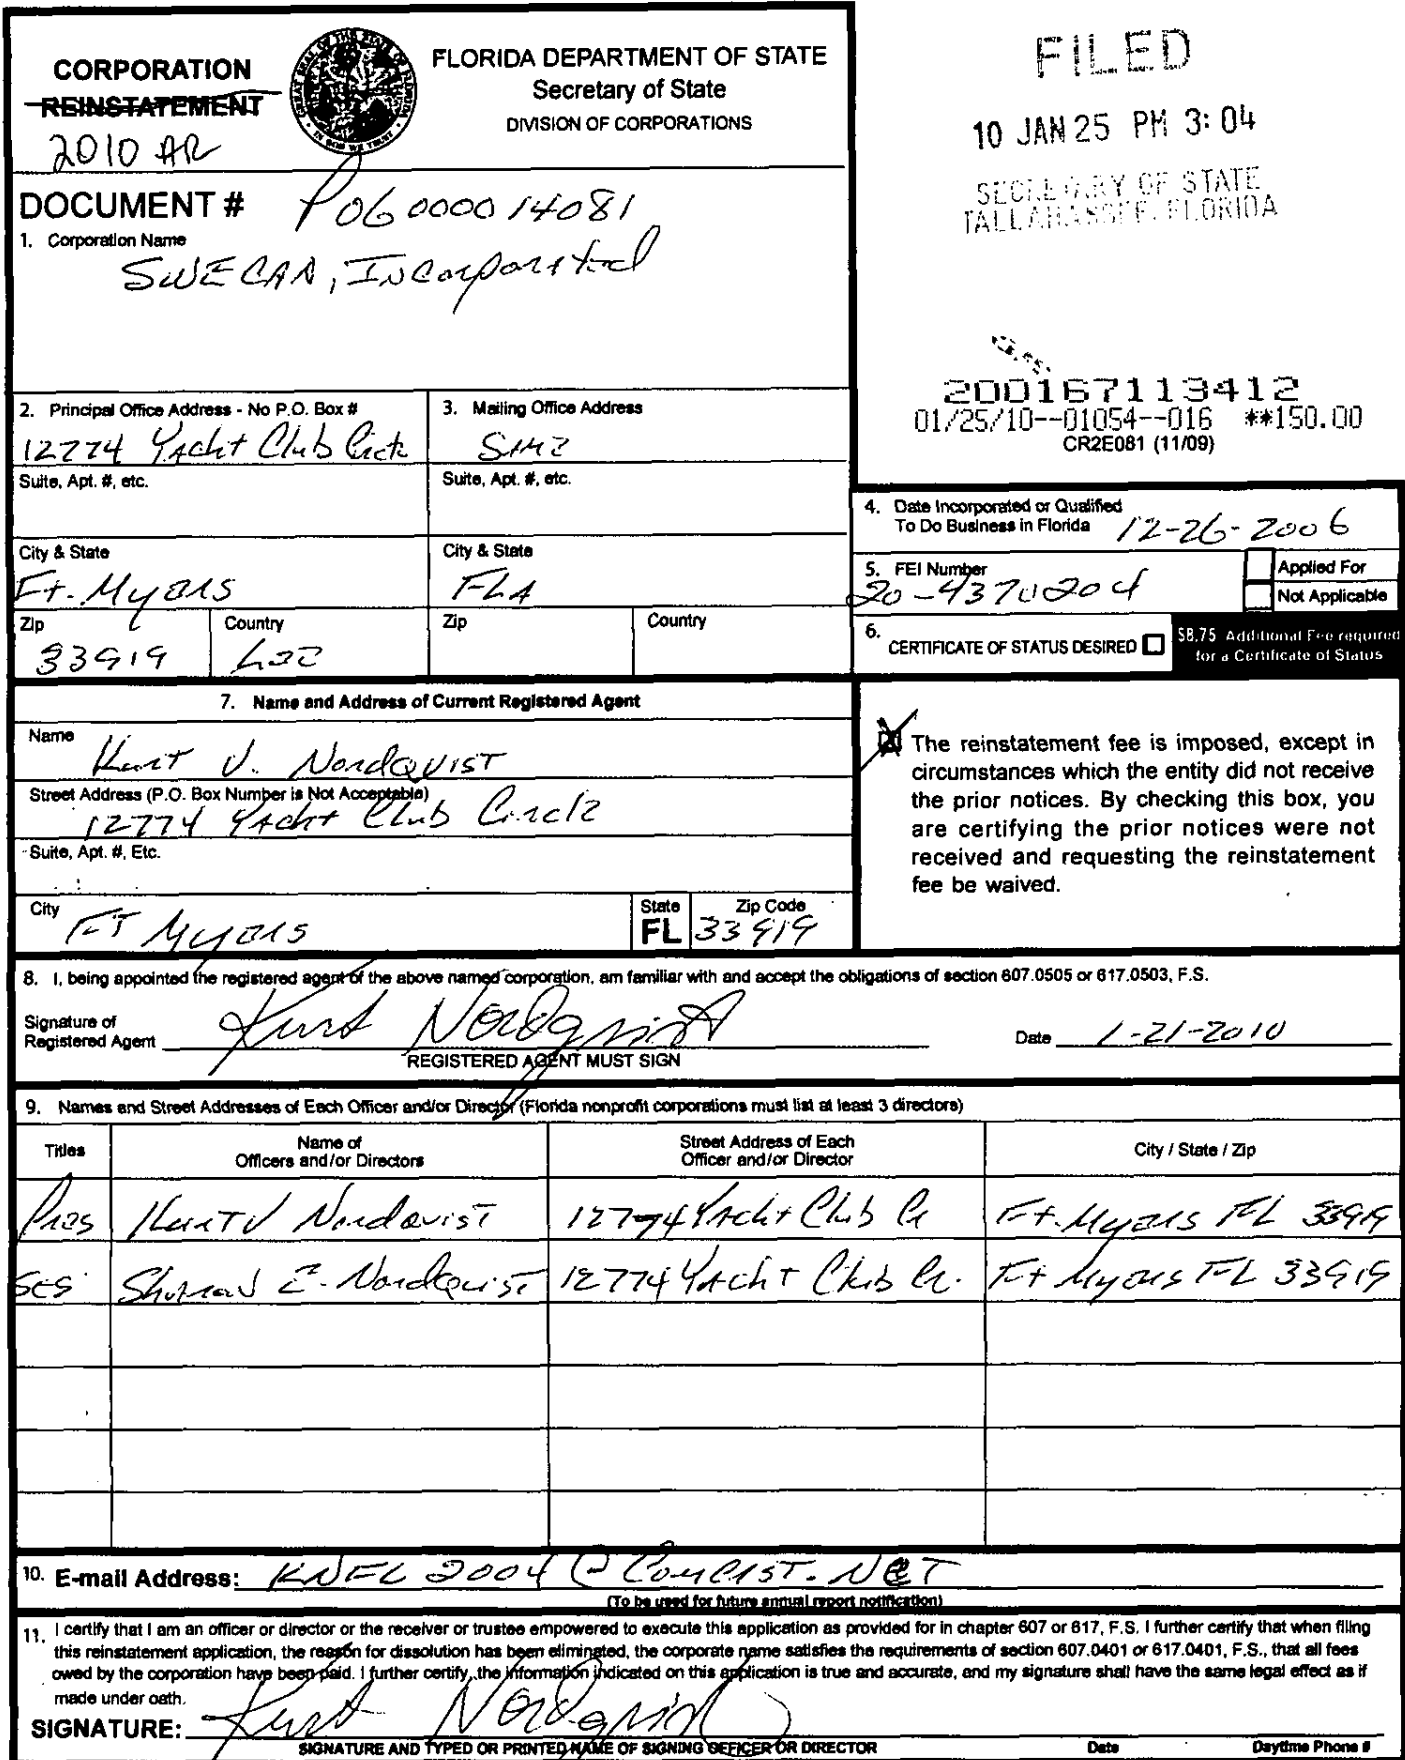 CORPORATION
REINSTATEMENT
2010 AR
FLORIDA DEPARTMENT OF STATE
Secretary of State
DIVISION OF CORPORATIONS
FILED
10 JAN 25 PM 3:04
SECRETARY OF STATE
TALLAHASSEE, FLORIDA
DOCUMENT # P06000014081
1. Corporation Name
Incorporated
200167113412
01/25/10--01054--016 **150.00
CR2E081 (11/09)
2. Principal Office Address - No P.O. Box #
12774 Yacht Club Circle
Suite, Apt. #, etc.
City & State
Ft. Myers
Zip
33919
Country
Lee
3. Mailing Office Address
Same
Suite, Apt. #, etc.
City & State
FLA
Zip
Country
4. Date Incorporated or Qualified
To Do Business in Florida 12-26-2006
5. FEI Number
20-4370204
Applied For
Not Applicable
6. CERTIFICATE OF STATUS DESIRED
$8.75 Additional Fee required
for a Certificate of Status
7. Name and Address of Current Registered Agent
Name
Kurt V. Nordqvist
Street Address (P.O. Box Number is Not Acceptable)
12774 Yacht Club Circle
Suite, Apt. #, Etc.
City
Ft Myers
State
FL
Zip Code
33919
The reinstatement fee is imposed, except in
circumstances which the entity did not receive
the prior notices. By checking this box, you
are certifying the prior notices were not
received and requesting the reinstatement
fee be waived.
8. I, being appointed the registered agent of the above named corporation, am familiar with and accept the obligations of section 607.0505 or 617.0503, F.S.
Signature of
Registered Agent Kurt Nordqvist
Date 1-21-2010
REGISTERED AGENT MUST SIGN
9. Names and Street Addresses of Each Officer and/or Director (Florida nonprofit corporations must list at least 3 directors)
Titles
Name of
Officers and/or Directors
Street Address of Each
Officer and/or Director
City / State / Zip
Pres Kurt V Nordqvist 12774 Yacht Club Cr Ft. Myers FL 33919
E. Nordqvist 12774 Yacht Club Cr. Ft Myers FL 33919
10. E-mail Address: KNFL2004@Comcast.Net
(To be used for future annual report notification)
11. I certify that I am an officer or director or the receiver or trustee empowered to execute this application as provided for in chapter 607 or 617, F.S. I further certify that when filing
this reinstatement application, the reason for dissolution has been eliminated, the corporate name satisfies the requirements of section 607.0401 or 617.0401, F.S., that all fees
owed by the corporation have been paid. I further certify, the information indicated on this application is true and accurate, and my signature shall have the same legal effect as if
made under oath.
SIGNATURE: Kurt Nordqvist
SIGNATURE AND TYPED OR PRINTED NAME OF SIGNING OFFICER OR DIRECTOR
Date
Daytime Phone #